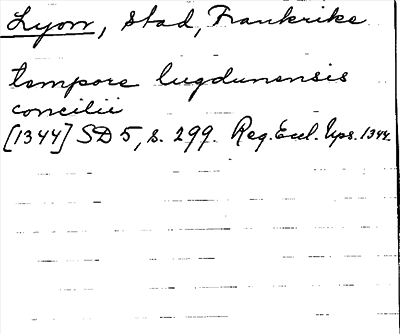 Lyon, Stad, Frankrike
tempore lugdunensis
concilii
[1344] SD 5, s. 299. Reg. Eccl. Ups. 1344.